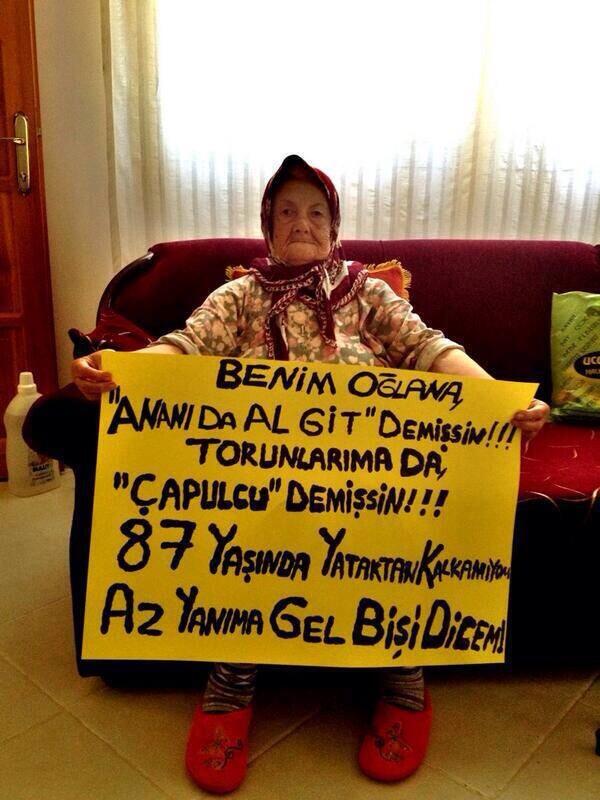 BENİM OĞLANA,
"ANANI DA AL GİT" DEMİŞSİN!!!
TORUNLARIMA DA,
"ÇAPULCU" DEMİŞSİN!!!
87 YAŞINDA YATAKTAN KALKAMIYOM
AZ YANIMA GEL BİŞİ DİCEM!